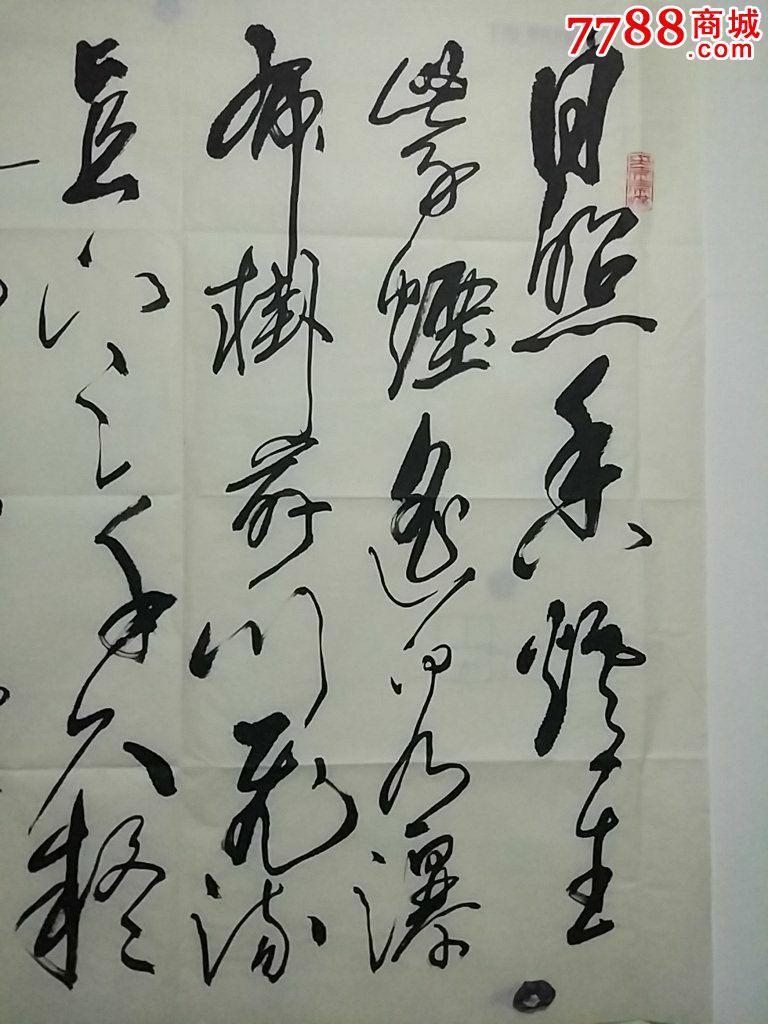 7788商城
.com
日照香爐生
紫煙遙看瀑
布掛前川飛流
直下三千尺疑